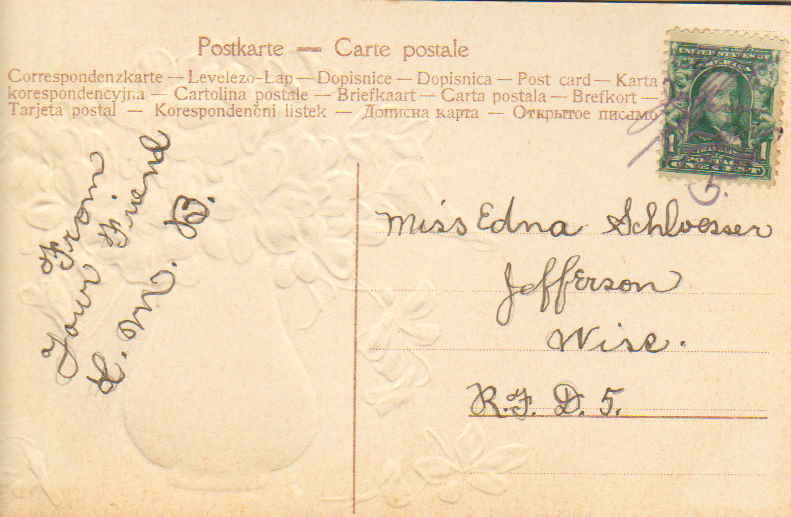 Postkarte — Carte postale
Correspondenzkarte — Levelezo-Lap — Dopisnice — Dopisnica — Post card — Karta
korespondencyjna — Cartolina postale — Briefkaart — Carta postala — Brefkort —
Tarjeta postal — Korespondenčni listek — Дописна карта — Открытое письмо
UNITED STATES OF
AMERICA
1 FRANKLIN 1
POSTAGE
ONE CENT
Miss Edna Schloesser
Jefferson
Wisc.
R.F.D. 5.
From
Your Friend
L. M. B.
5.